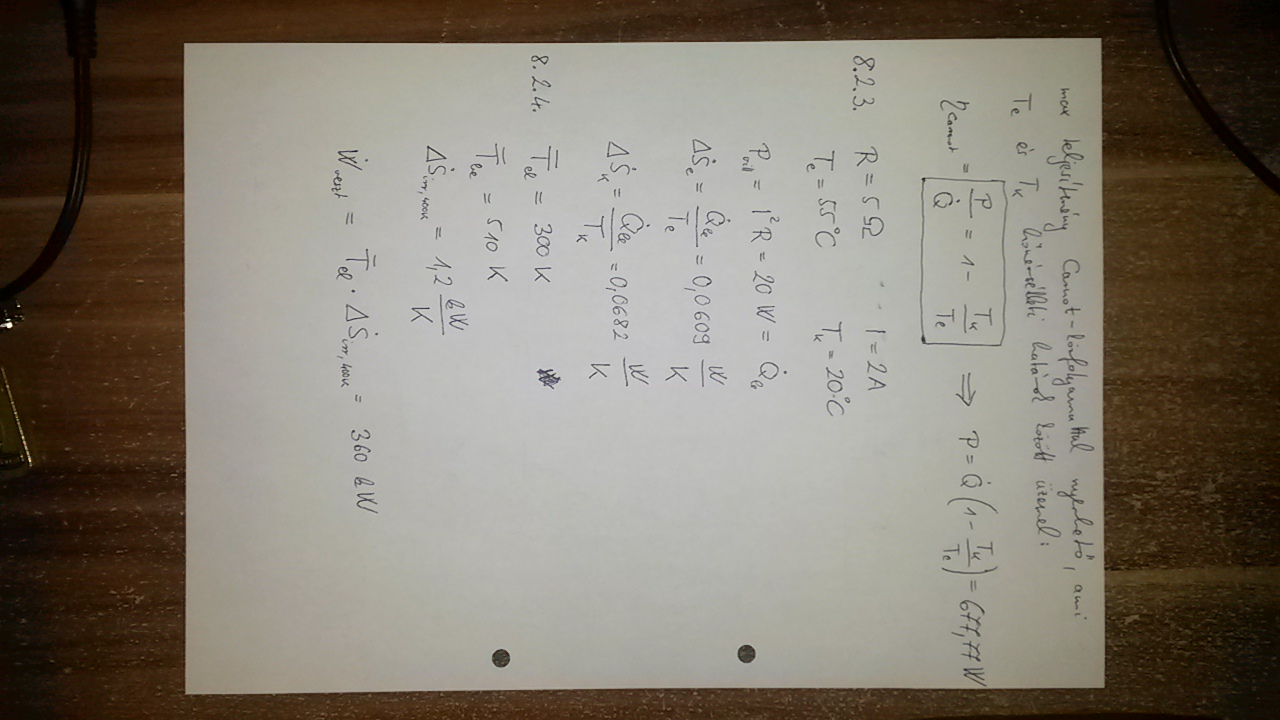 max teljesítmény Carnot-körfolyamattal nyerhető, ami
Te és Tk hőmérsékleti határok között üzemel:
ηcarnot = P/Q̇ = 1 - Tk/Te ⇒ P = Q̇ (1 - Tk/Te) = 677,77 W
8.2.3. R = 5 Ω I = 2A
Te = 55°C Tk = 20°C
Pvill = I²R = 20 W = Q̇le
ΔṠe = Q̇le/Te = 0,0609 W/K
ΔṠk = Q̇le/Tk = 0,0682 W/K
8.2.4. T̄el = 300 K
T̄be = 510 K
ΔṠirr,400K = 1,2 kW/K
Ẇveszt = T̄el · ΔṠirr,400K = 360 kW